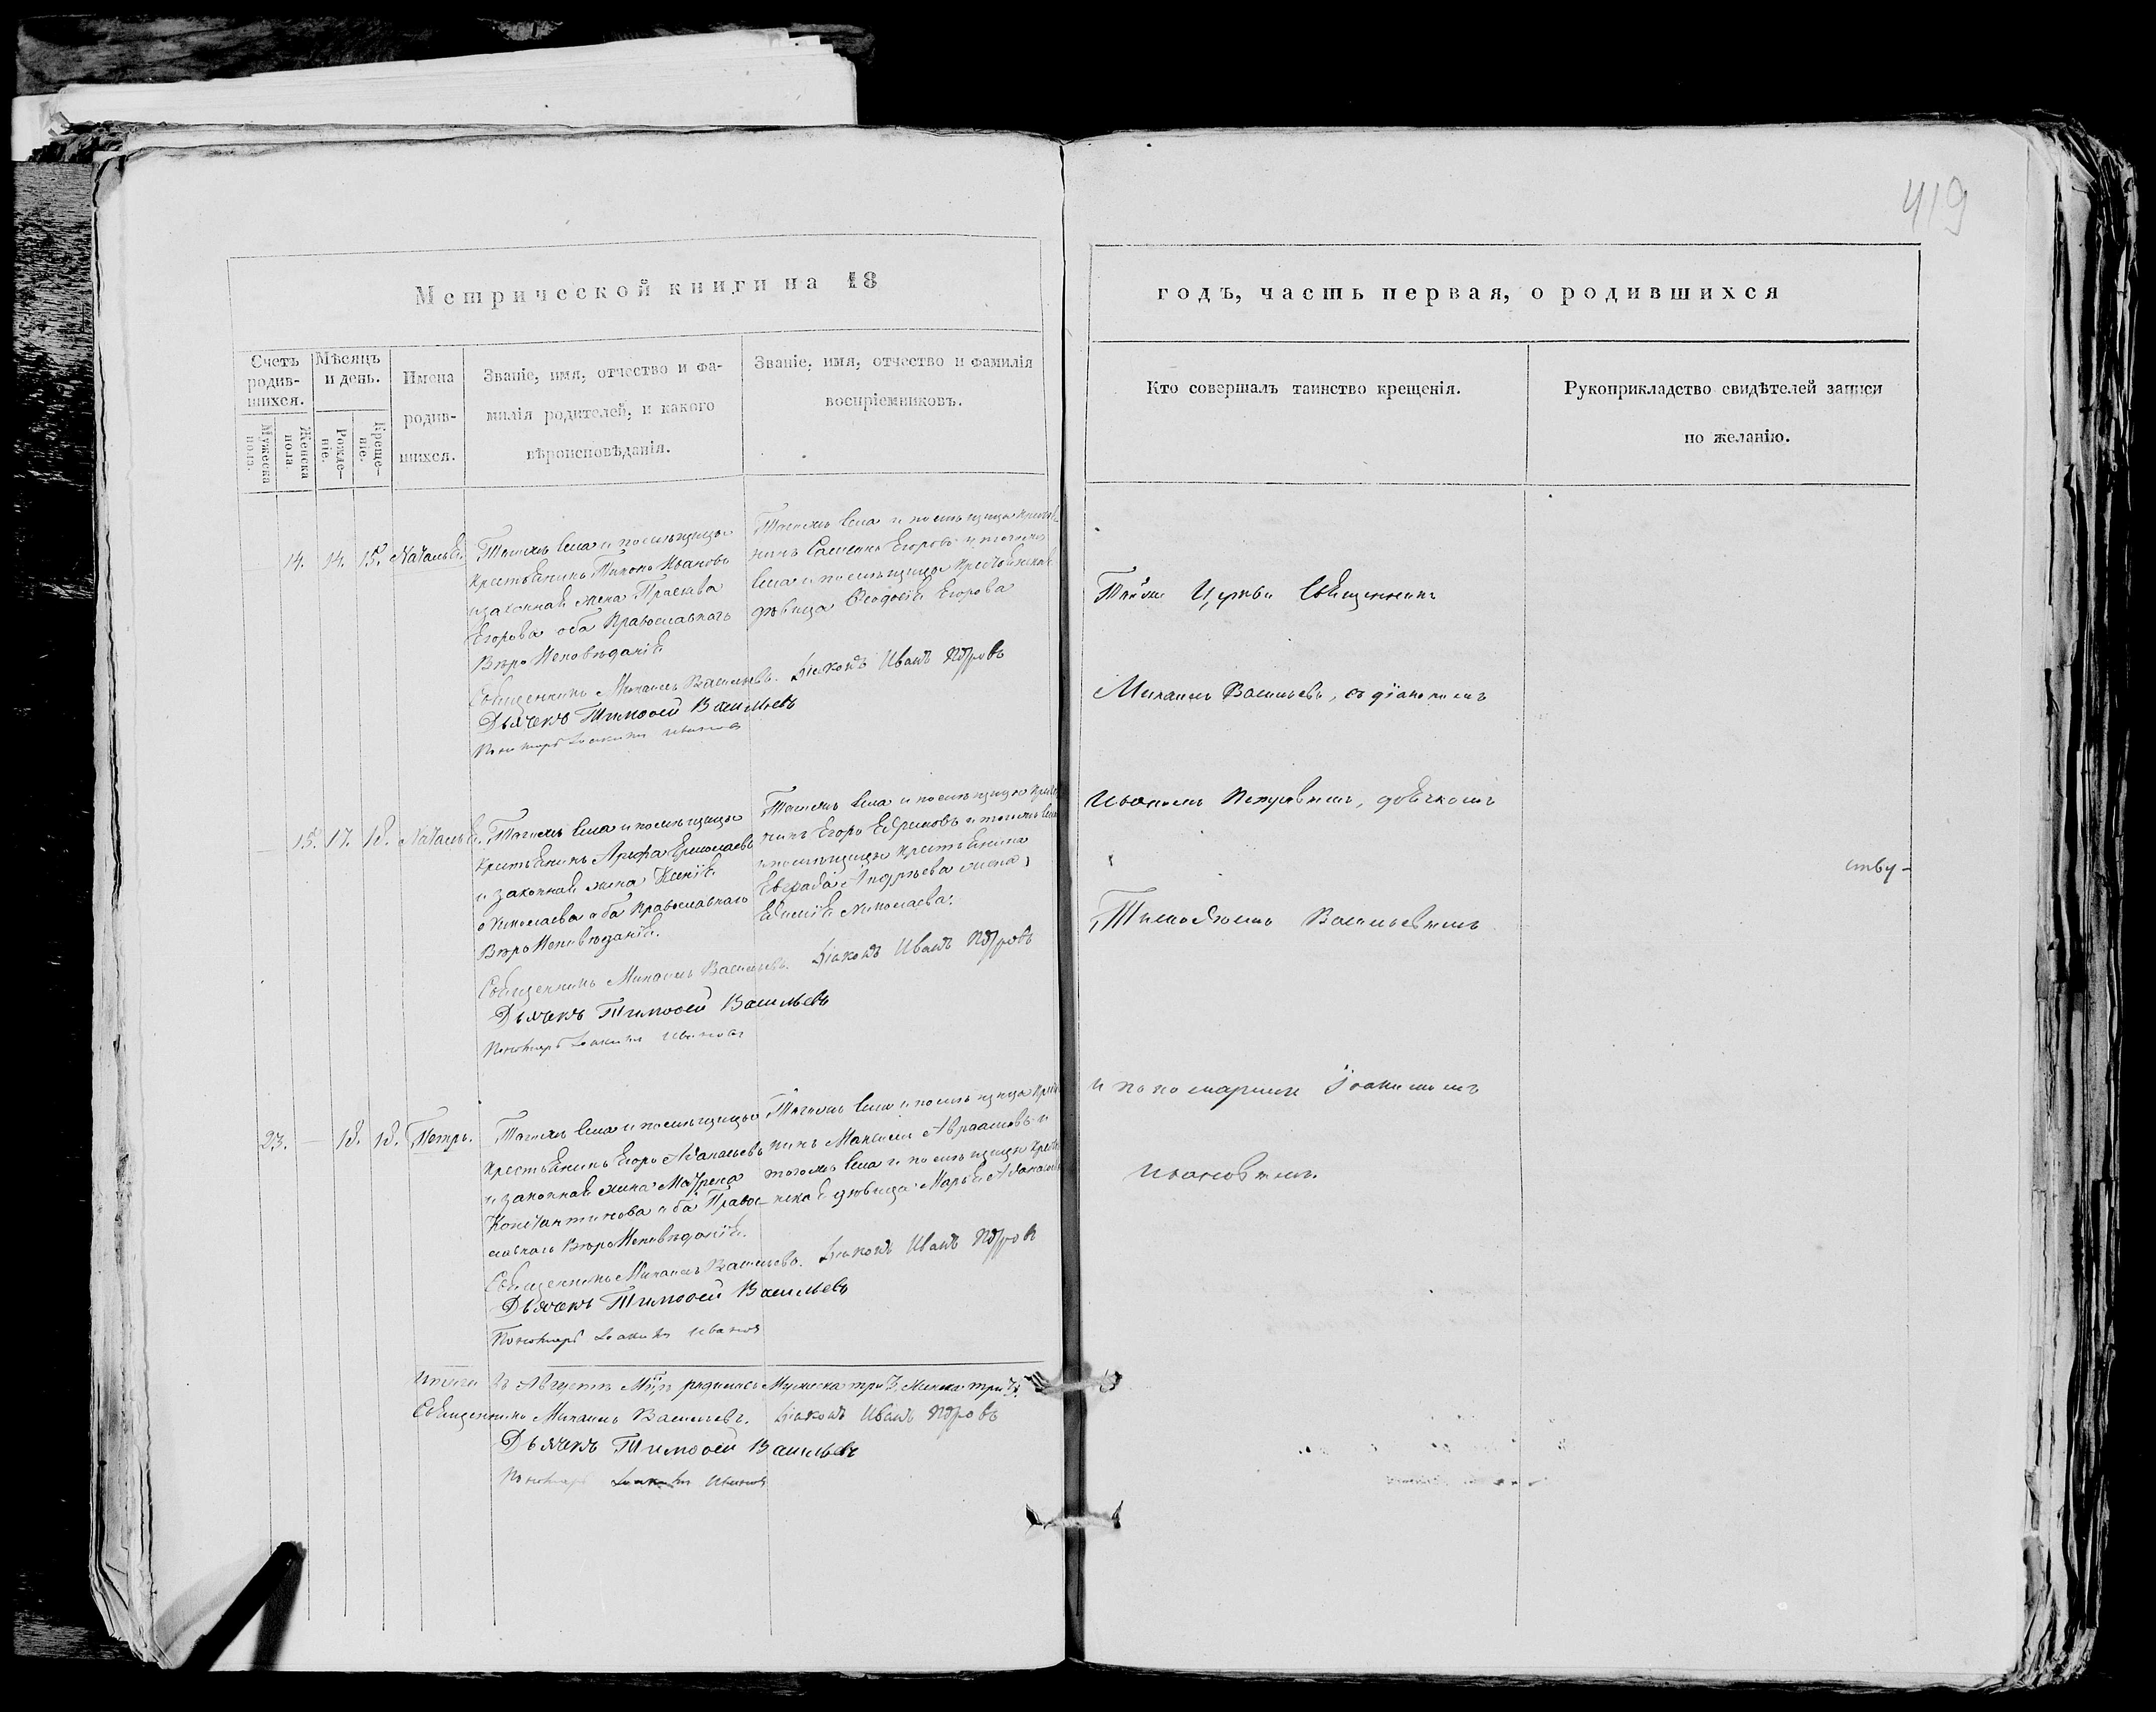 419
Метрической книги на 18
годъ, часть первая, о родившихся
Счетъ родив-шихся.
Мужеска пола.
Женска пола
Мѣсяцъ и день.
Рожде-ніе.
Креще-ніе.
Имена родив-шихся.
Званіе, имя, отчество и фа-
милія родителей, и какого
вѣроисповѣданія.
Званіе, имя, отчество и фамилія
воспріемниковъ.
Кто совершалъ таинство крещенія.
Рукоприкладство свидѣтелей записи
по желанію.
14. 14. 15. Наталья.
Тогожъ села и помѣщицы
крестьянинъ Тихонъ Ивановъ
и законная жена Прасковa
Егорова оба Православнаго
ВѣроИсповѣданія
Тогожъ села и помѣщицы
нинъ Егоровъ и тогожъ
села и помѣщицы
дѣвица Ѳеодосія Егорова
Священникъ Михаилъ Васильевъ. Діаконъ Иванъ Петровъ
Дьячекъ Тимоѳей Васильевъ
Пономарь Іоакимъ Ивановъ
15. 17. 18. Наталья.
Тогожъ села и помѣщицы
крестьянинъ Арефа Ермолаевъ
и законная жена Ксенія
Николаева оба Православнаго
ВѣроИсповѣданія.
Тогожъ села и помѣщицы
нинъ Егоръ Ефремовъ и тогожъ
и помѣщицы крестьянина
Андрѣева жена
Николаева.
Священникъ Михаилъ Васильевъ. Діаконъ Иванъ Петровъ
Дьячекъ Тимоѳей Васильевъ
Пономарь Іоакимъ Ивановъ
23. — 18. 18. Петръ.
Тогожъ села и помѣщицы
крестьянинъ Егоръ Аѳанасьевъ
и законная жена Матрена
Константинова оба Право-
славнаго ВѣроИсповѣданія.
Тогожъ села и помѣщицы
нинъ Максимъ Авраамовъ и
тогожъ села и помѣщицы
дѣвица Марья
Священникъ Михаилъ Васильевъ. Діаконъ Иванъ Петровъ
Дьячекъ Тимоѳей Васильевъ
Пономарь Іоакимъ Ивановъ
Итого въ Августѣ родилось Мужеска три 3. Женска три 3.
Священникъ Михаилъ Васильевъ. Діаконъ Иванъ Петровъ
Дьячекъ Тимоѳей Васильевъ
Пономарь Іоакимъ Ивановъ
Тойже Церкви Священникъ
Михаилъ Васильевъ, съ діакономъ
Иваномъ Петровымъ, дьячкомъ
ству-
Тимоѳеемъ Васильевымъ
и пономаремъ Іоакимомъ
Ивановымъ.